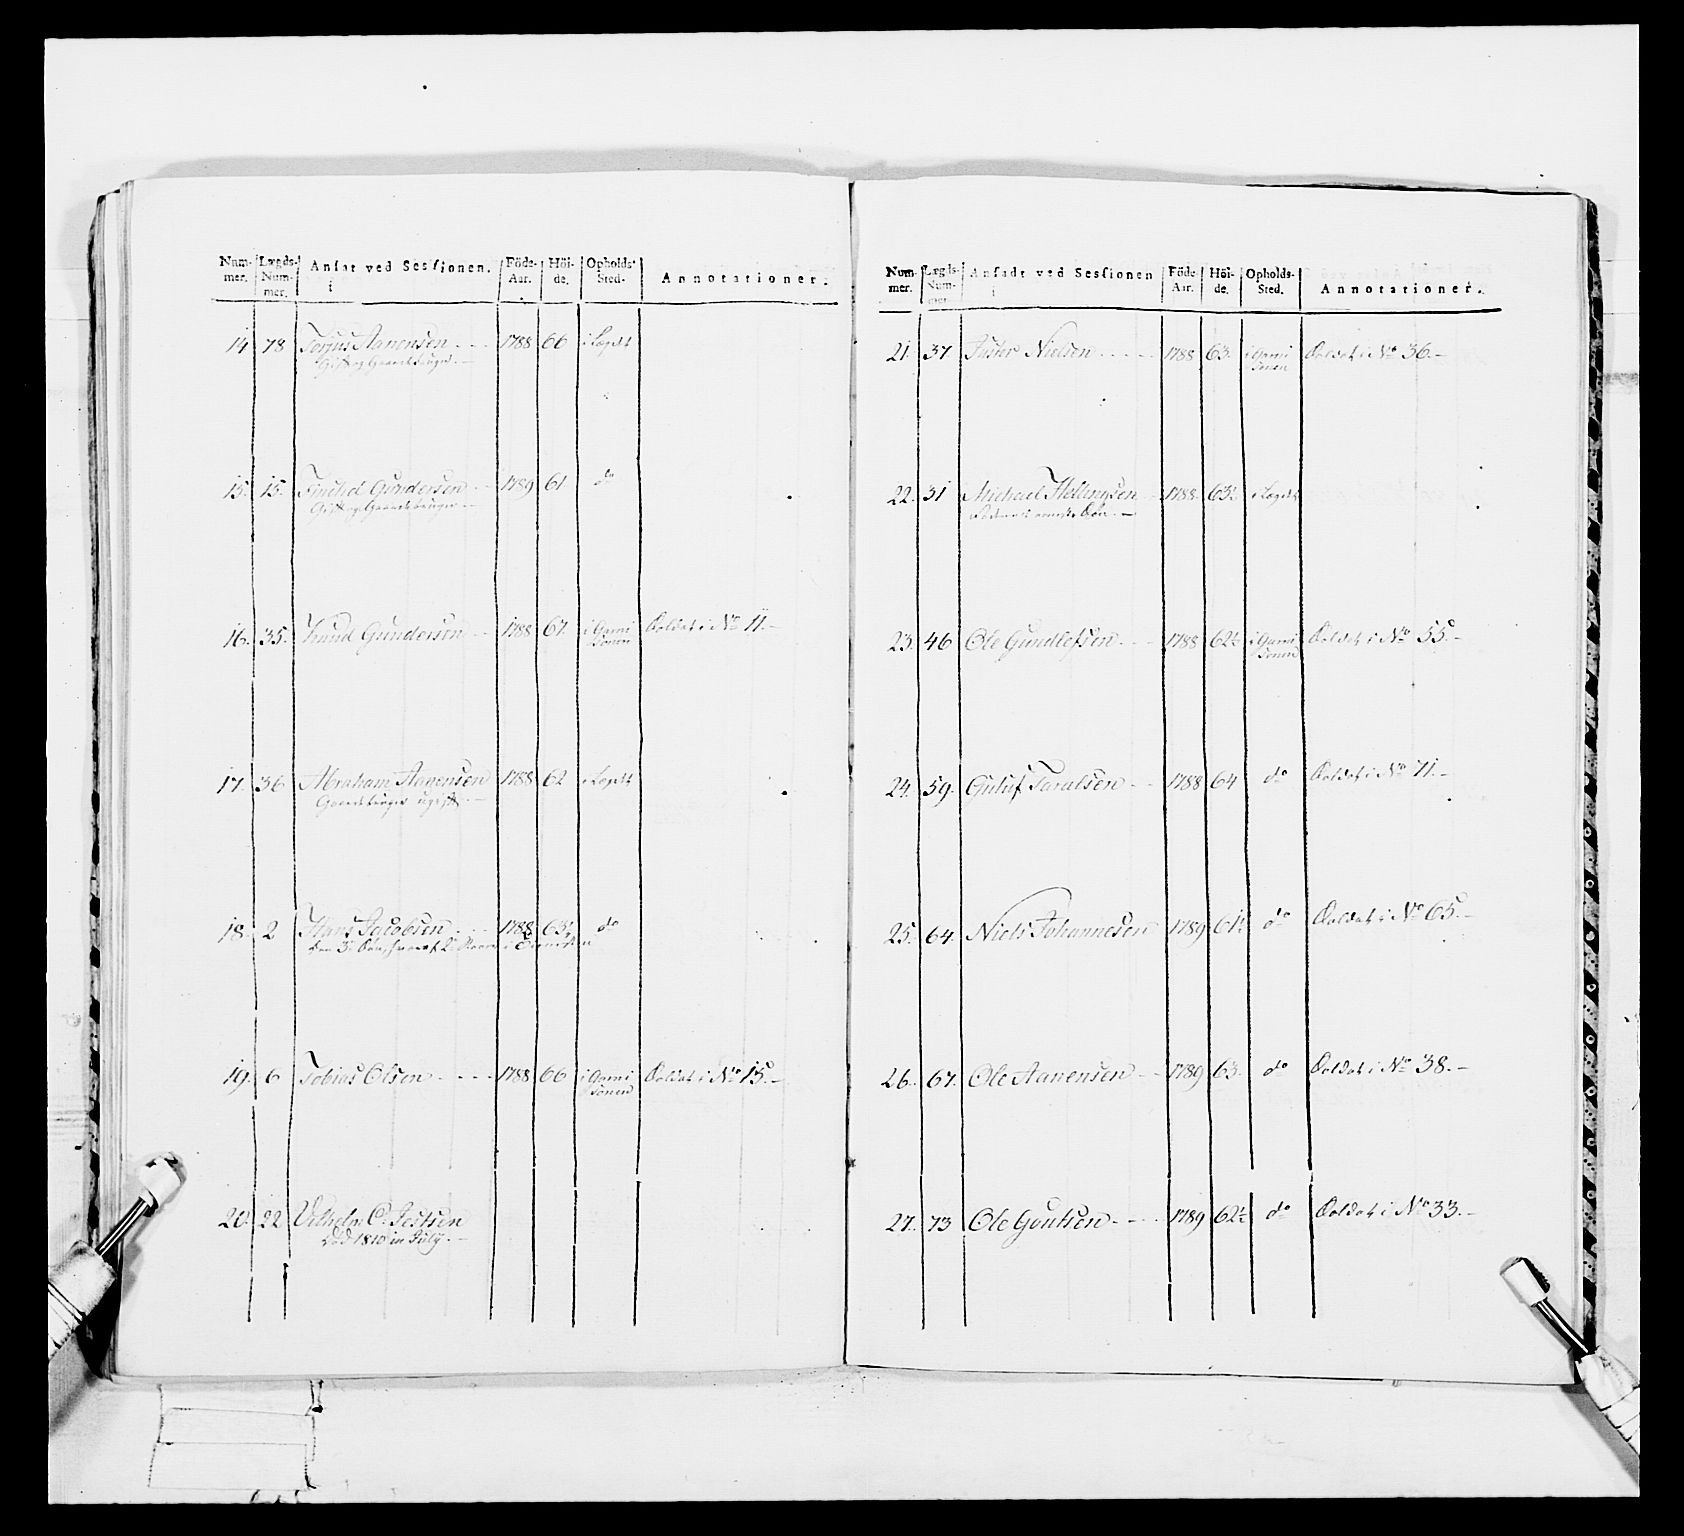 Num- Lægds- Ansat ved Sessionen. Föde- Höi- Opholds-
mer. Num- Aar. de. Sted. Annotationer.
mer.
14 78 Torjus Aanensen 1788 66 i Lægdt
Gift og Gaardbruger.
15. 15. Gundersen 1789 61 do
Gift og Gaardebruger
16. 35. Knud Gundersen 1788 67. i Garni Soldat i No 11.
sonen
17. 36 Abraham Aanensen 1788 62 i Lægdt
Gaardbruger ugift.
18. 2 Hans Jacobsen 1788 63½ do
19. 6 Tobias Olsen 1788 66 i Garni Soldat i No 15.
sonen
20. 22 Vilhelm C.
Död 1810 in July.
Num- Lægds- Ansadt ved Sessionen Föde Höi- Opholds-
mer. Num- Aar. de. Sted. Annotationer.
mer.
21. 37 Nielsen 1788 63. i Garni Soldat i No 36.
sonen
22. 31 Michael 1788 63½ i Lægdt
23. 46 Ole Gundlefsen 1788 62½ i Garni Soldat i No 55.
sonen
24. 59. Taralsen 1788 64 do Soldat i No 71.
25. 64. Niels Johannesen 1789 61½ do Soldat i No 65.
26. 67. Ole Aanensen 1789 63. do Soldat i No 38.
27. 73 Ole 1789 62½ do Soldat i No 33.